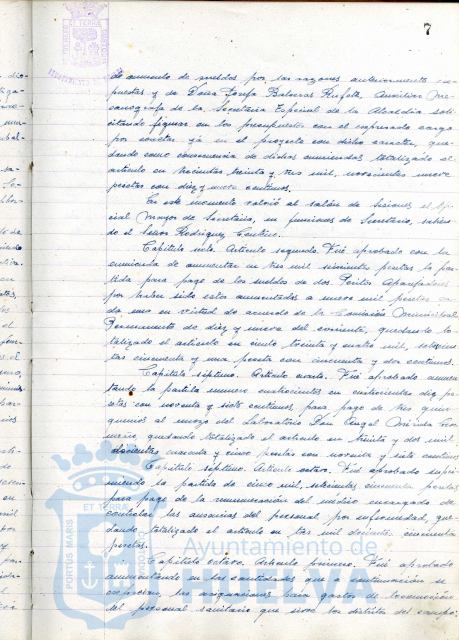 7
de aumento de sueldos por las razones anteriormente ex-
puestas y de Doña Josefa Balseras Rufete, Auxiliar Me-
canógrafa de la Secretaría Especial de la Alcaldía soli-
citando figurar en los presupuestos con el expresado cargo
por constar ya en el proyecto con dicho caracter, que-
dando como consecuencia de dichas enmiendas totalizado el
artículo en trecientas treinta y tres mil, novecientas nueve
pesetas con diez y nueve centimos.
En este momento volvió al salón de sesiones el Ofi-
cial Mayor de Secretaría, en funciones de Secretario, salien-
do el Señor Rodríguez
Capítulo sexto. Artículo segundo. Fué aprobado con la
enmienda de aumentar en tres mil seiscientas pesetas la par-
tida para pago de los sueldos de dos Peritos Aparejadores
por haber sido estos aumentados a nueve mil pesetas ca-
da uno en virtud de acuerdo de la Comisión Municipal
Permanente de diez y nueve del corriente, quedando to-
talizado el artículo en ciento treinta y cuatro mil,
cincuenta y una peseta con cincuenta y dos centimos.
Capítulo septimo. Artículo cuarto. Fué aprobado aumen-
tando la partida numero en cuatrocientas diez pese-
tas con noventa y siete centimos, para pago de tres quin-
quenios al mozo del Laboratorio Don Angel
quedando totalizado el artículo en treinta y dos mil
doscientas cuarenta y cinco pesetas con noventa y siete centimos
Capítulo septimo. Artículo octavo. Fué aprobado supri-
miendo la partida de cinco mil, setecientas cincuenta pesetas
para pago de la remuneración del médico encargado de
controlar las ausencias del personal por enfermedad, que-
dando totalizado el artículo en tres mil doscientas cincuenta
pesetas.
Capítulo octavo. Artículo primero. Fué aprobado
aumentando en las cantidades que a continuación se
expresan, las asignaciones para gastos de locomoción
del personal sanitario que sirve los distritos del campo:
PORTUS MARIS ET TERRAE
Ayuntamiento de
HUELVA